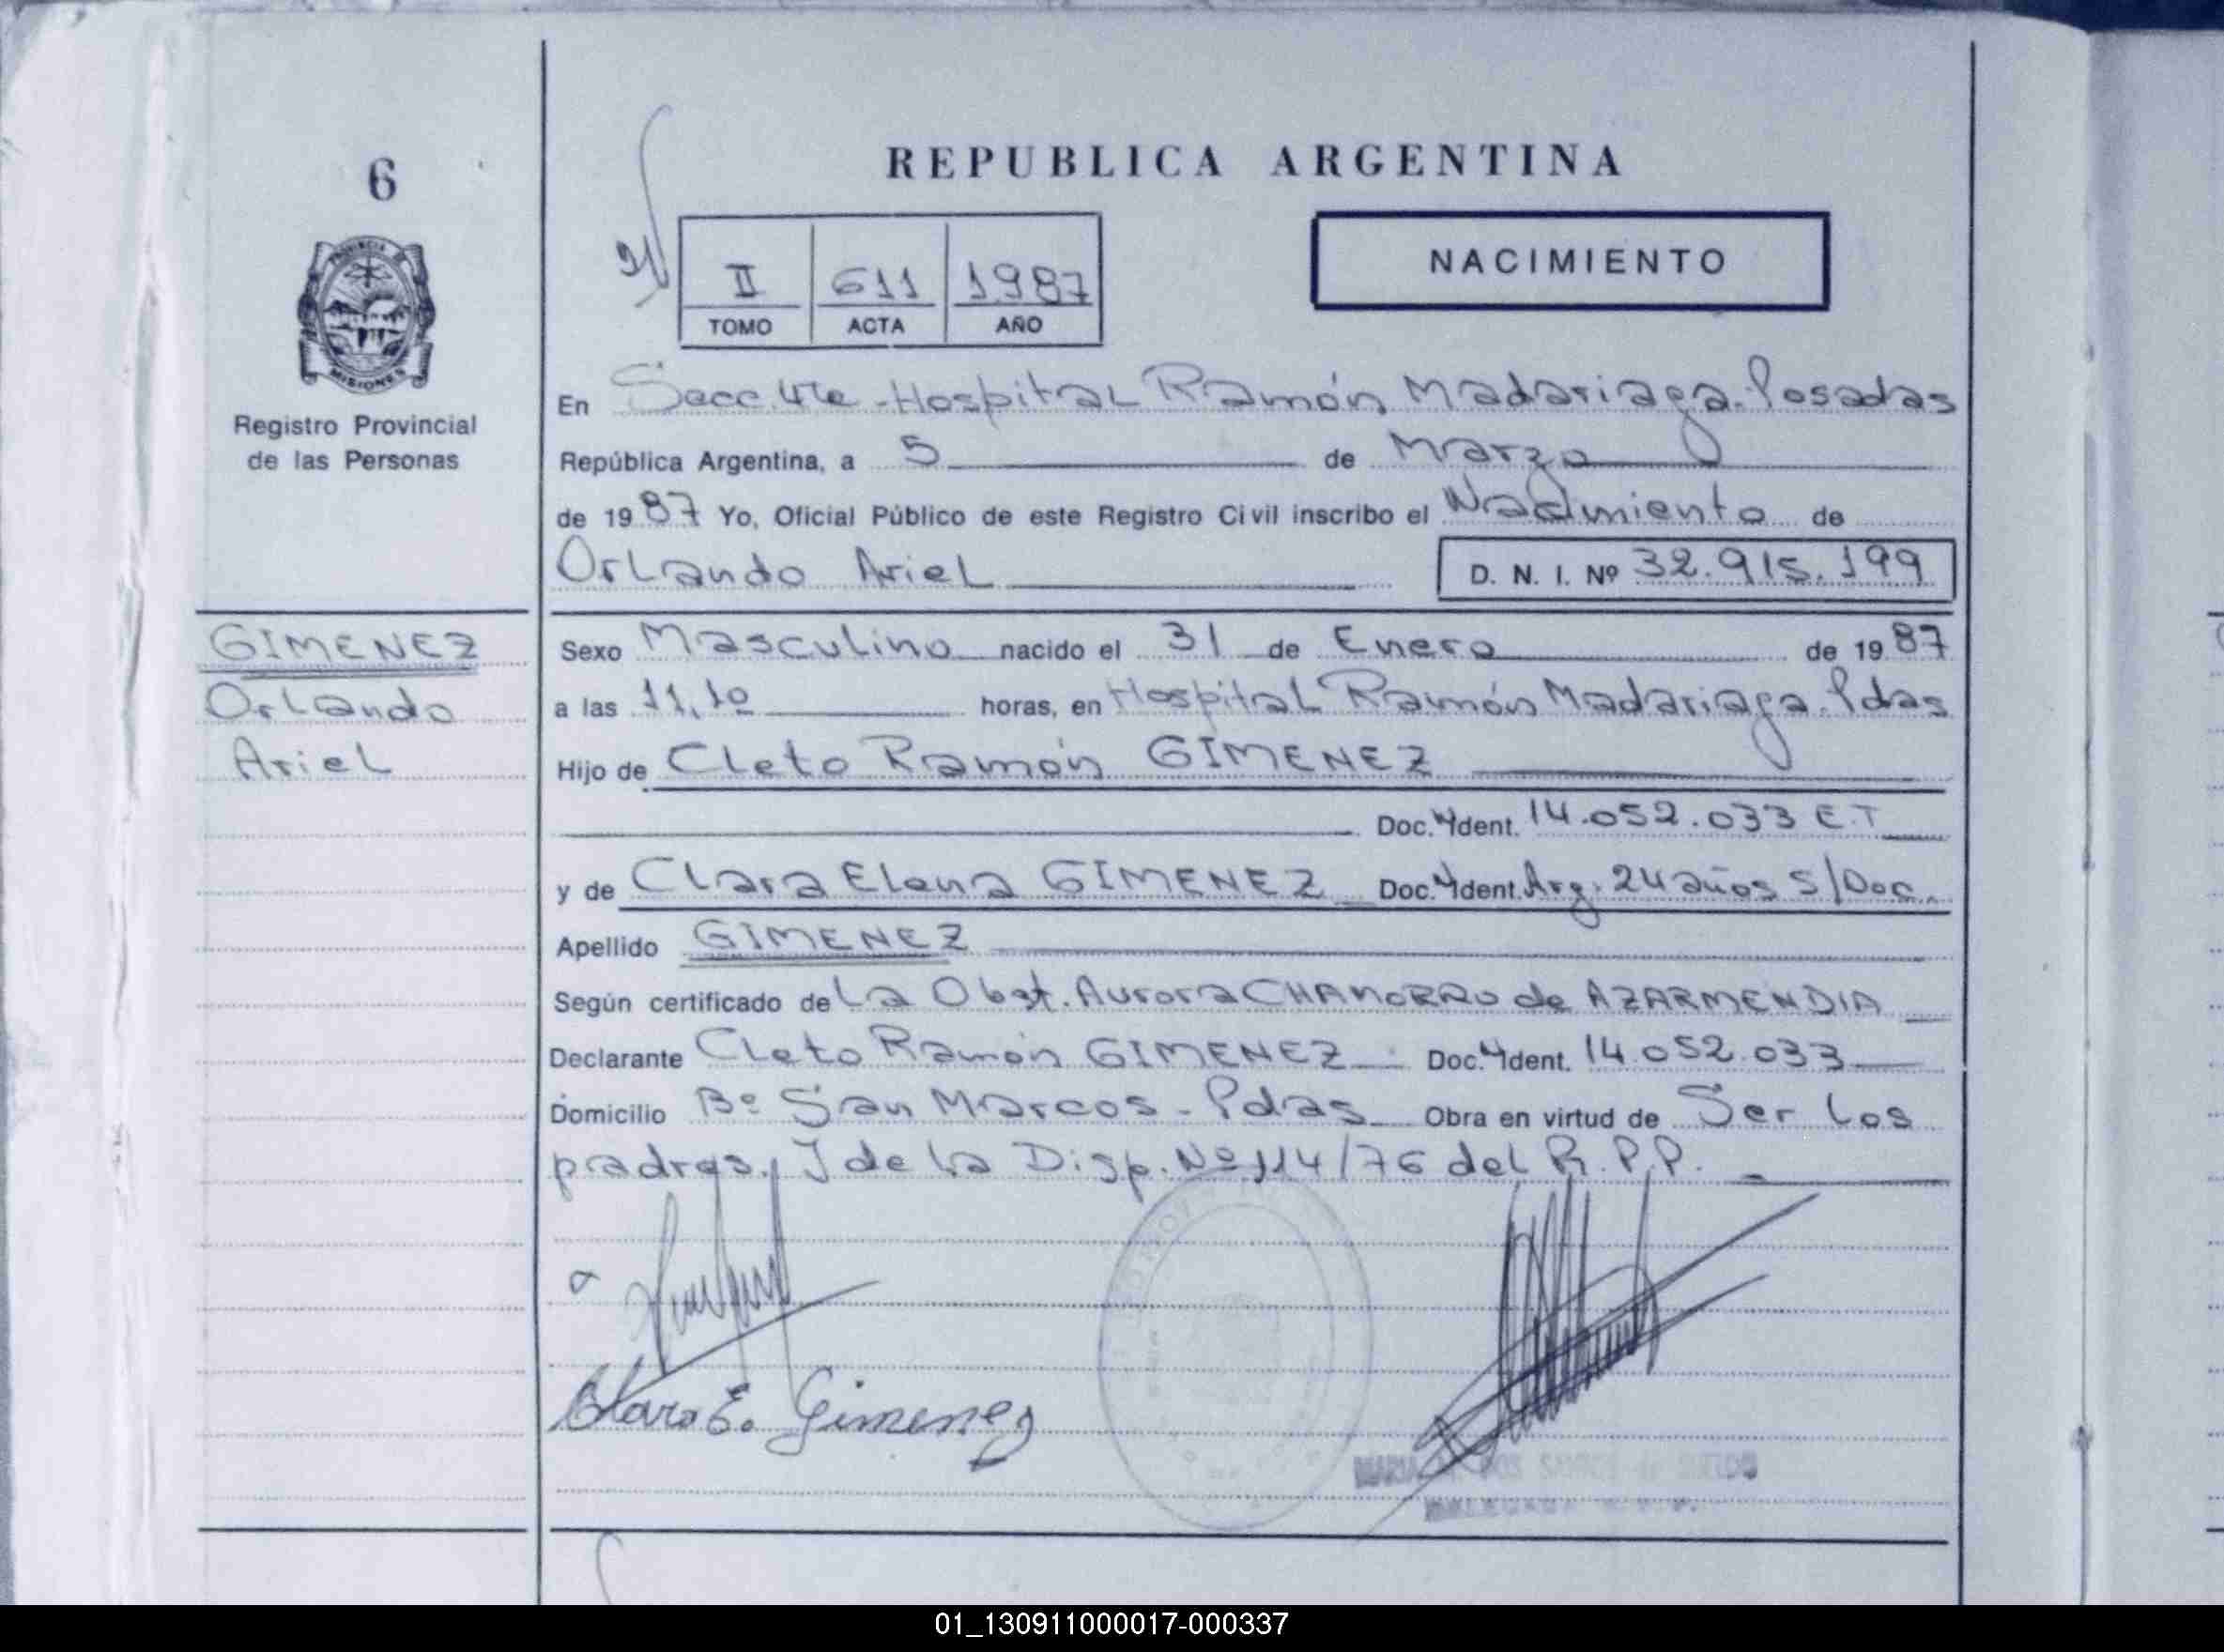 6
PROVINCIA DE
MISIONES
Registro Provincial
de las Personas
GIMENEZ
Orlando
Ariel
REPUBLICA ARGENTINA
II 611 1987
TOMO ACTA AÑO
NACIMIENTO
En Secc. 4te - Hospital Ramón Madariaga. Posadas
República Argentina, a 5 de Marzo
de 1987 Yo, Oficial Público de este Registro Civil inscribo el Nacimiento de
Orlando Ariel D. N. I. Nº 32.915.199
Sexo Masculino nacido el 31 de Enero de 1987
a las 11,10 horas, en Hospital Ramón Madariaga. Pdas
Hijo de Cleto Ramón GIMENEZ
Doc. Ident. 14.052.033 E.T
y de Clara Elena GIMENEZ Doc. Ident. Arg. 24 años S/Doc.
Apellido GIMENEZ
Según certificado de La Obst. Aurora CHAMORRO de AZARMENDIA
Declarante Cleto Ramón GIMENEZ Doc. Ident. 14.052.033
Domicilio Bº San Marcos - Pdas Obra en virtud de Ser los
padres, J de la Disp. Nº 114/76 del R.P.P.
Clara E. Gimenez
MARIA DOS SANTOS de
01_130911000017-000337